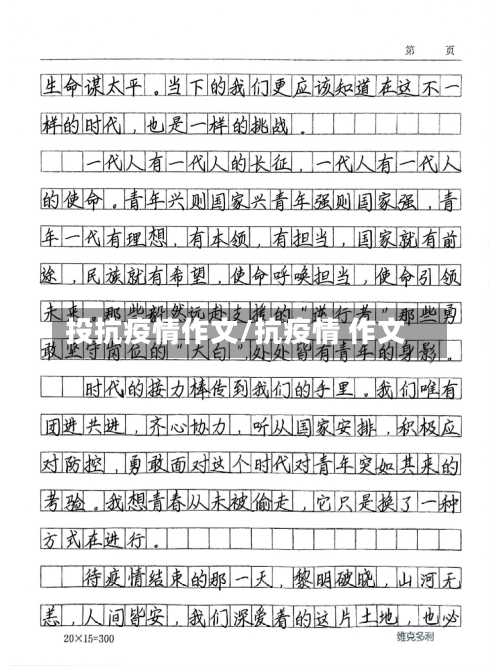 第 页
生命谋太平。当下的我们更应该知道在这不一
样的时代,也是一样的挑战。
一代人有一代人的长征,一代人有一代人
的使命。青年兴则国家兴青年强则国家强,青
年一代有理想,有本领,有担当,国家就有前
途,民族就有希望,使命呼唤担当,使命引领
未来。那些毅然远赴支援的“逆行者”那些勇
投抗疫情作文/抗疫情 作文
敢坚守岗位的“大白”处处皆有青年的身影。
时代的接力棒传到我们的手里。我们唯有
团进共进,齐心协力,听从国家安排,积极应
对防控,勇敢面对这个时代对青年突如其来的
考验。我想青春从未被偷走,它只是换了一种
方式在进行。
待疫情结束的那一天,黎明破晓,山河无
恙,人间皆安,我们深爱着的这片土地,也必
20×15=300
维克多利